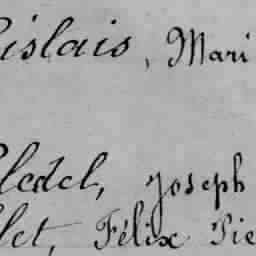 islais, Mari
ledel, Joseph
let, Félix Pie